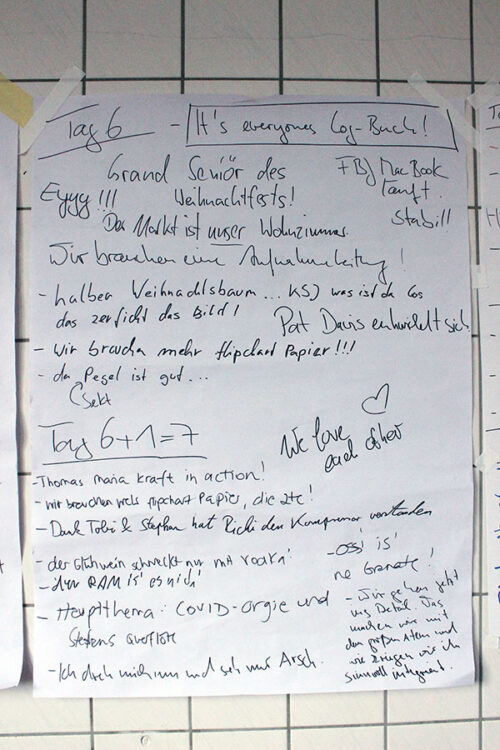 Tag 6 - It's everyones Log-Buch!
Grand Seniör des
Weihnachtfests!
FBJ MacBook
läuft.
Stabill
Eyyy!!!
Der Markt ist unser Wohnzimmer.
Wir brauchen eine Aufnahmeleitung!
- halber Weihnachtsbaum ... KSJ was ist da los
das zerfickt das Bild!
Pat Davis entwickelt sich
- Wir brauchen mehr flipchart Papier!!!
- der Pegel ist gut...
Sekt
Tag 6+1=7
We love
each other
- Thomas maria kraft in action!
- wir brauchen flipchart Papier, die 2te!
- Dank Tobi & Stephan hat Richi den Kompressor verstanden
- der Glühwein schmeckt nur mit vodka!
- der RAM is' es nich'
- Ossi is'
ne Granate!
- Hauptthema: COVID-orgie und
Stephens
- Ich dreh mich um und seh nur Arsch.
- Wir gehen jetzt
ins Detail. Was
machen wir mit
dem großen Atem und
wie kriegen wir ihn
sinnvoll integriert.